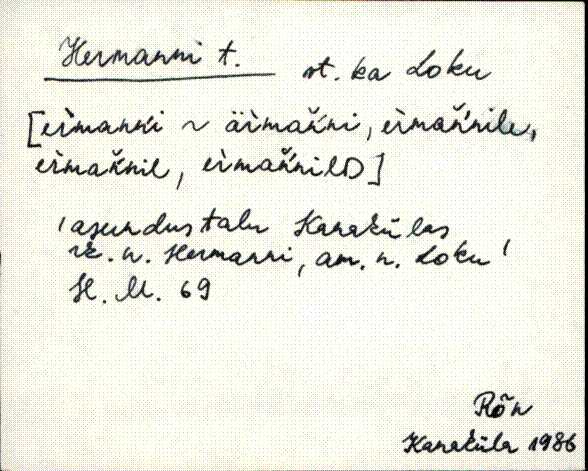 Hermanni t. vt. ka Loku
[èrmanńi ~ ärmańni, èrmańnile,
èrmańnil, èrmańnilD]
'asundustalu Kanakülas
rk. n. Hermanni, am. n. Loku'
H. M. 69
Rõn
Kanaküla 1986